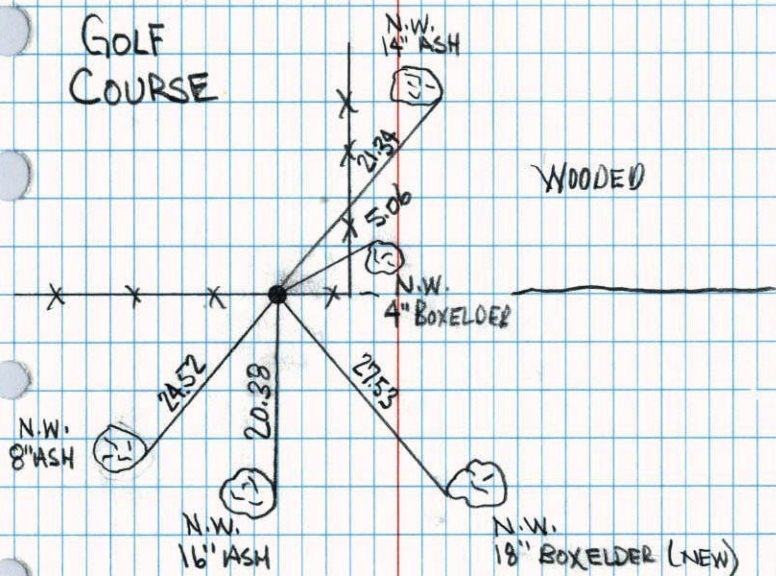 GOLF
COURSE
N.W.
14" ASH
21.34
WOODED
5.06
N.W.
4" BOXELDER
24.52
20.38
27.53
N.W.
8" ASH
N.W.
16" ASH
N.W.
18" BOXELDER (NEW)